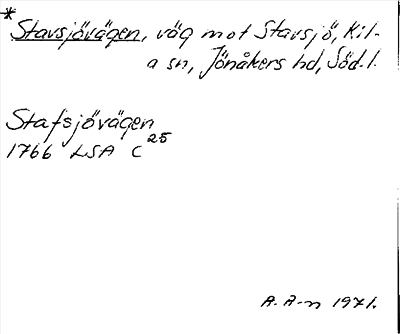 * Stavsjövägen, väg mot Stavsjö, Kil-
a sn, Jönåkers hd, Söd. l.
Stafsjövägen
1766 LSA C 25
A. A-n 1971.